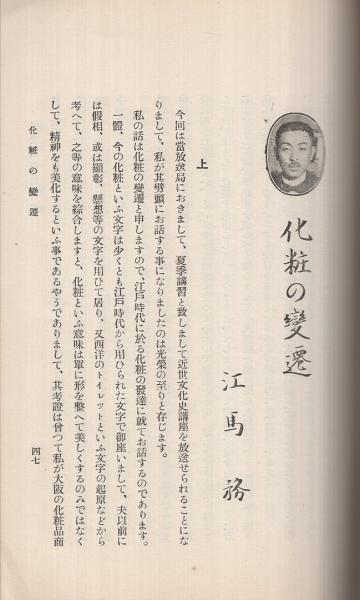 化粧の變遷
江馬務
上
今回は當放送局におきまして、夏季講習と致しまして近世文化史講座を放送せられることにな
りまして、私が其劈頭にお話する事になりましたのは光榮の至りと存じます。
私の話は化粧の變遷と申しますので、江戸時代に於る化粧の發達に就てお話するのであります。
一體、今の化粧といふ文字は少くとも江戸時代から用ひられた文字で御座いまして、夫以前に
は假相、或は顯彰、懸想等の文字を用ひて居り、又西洋のトイレットといふ文字の起原などから
考へて、之等の意味を綜合しますと、化粧といふ意味は單に形を整へて美しくするのみではなく
して、精神をも美化するといふ事であるやうでありまして、其考證は曾つて私が大阪の化粧品商
化粧の變遷
四七